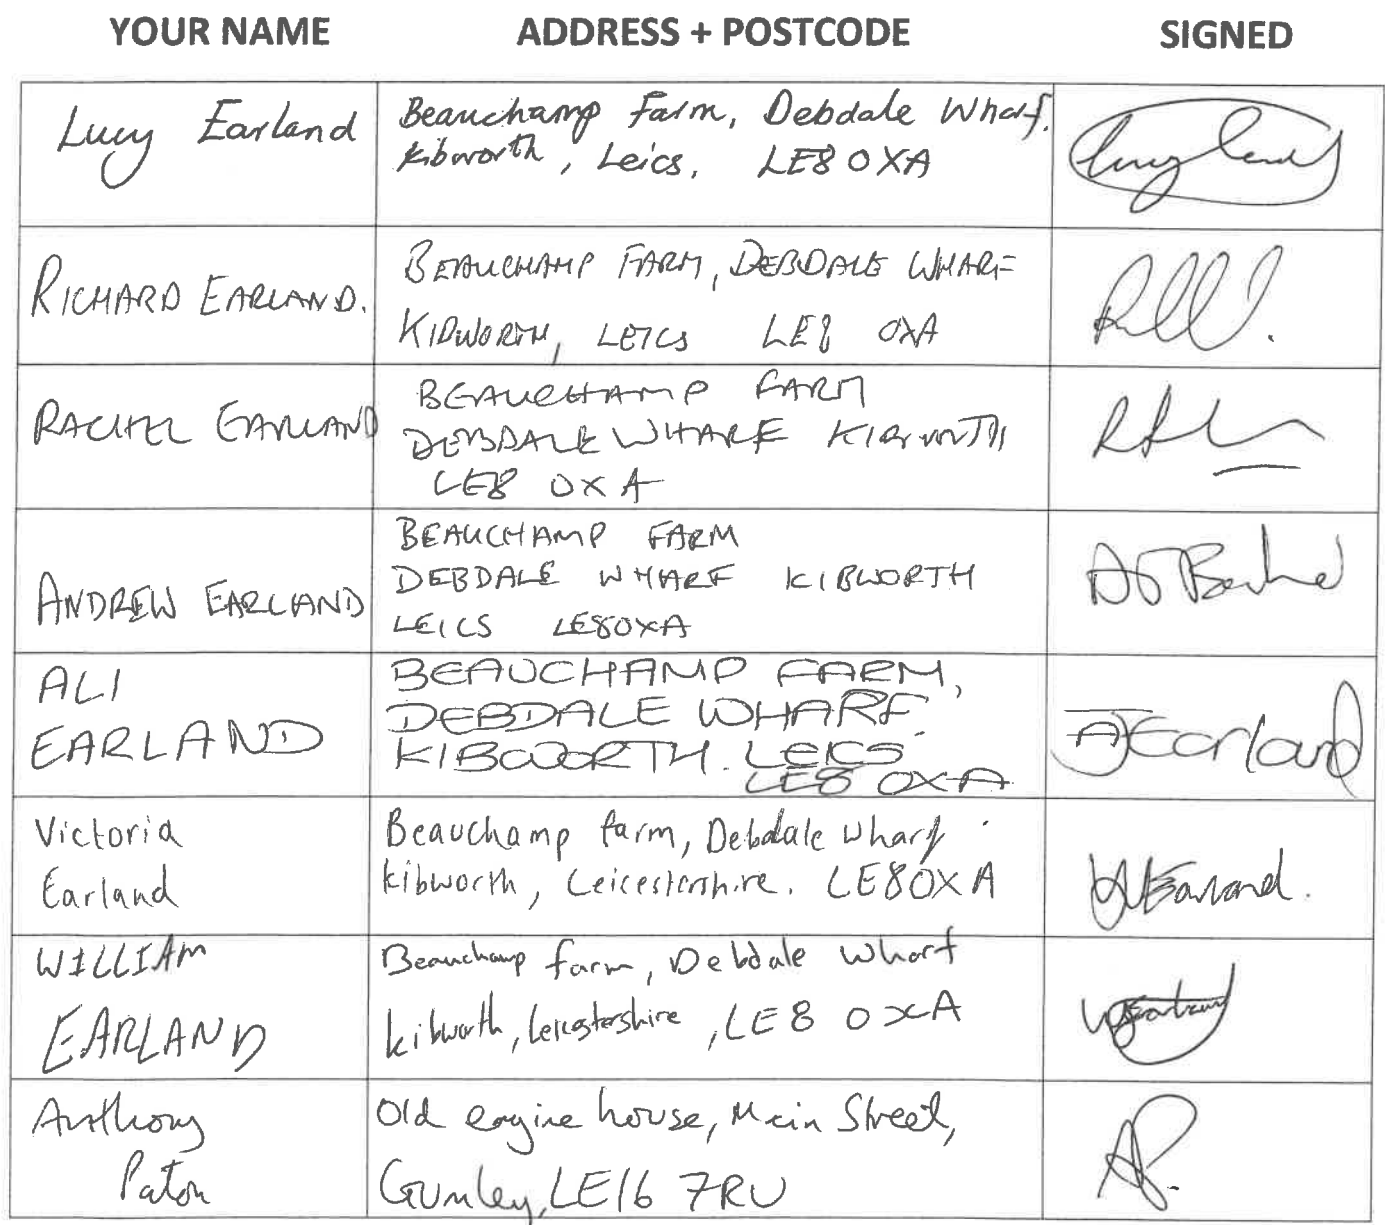 YOUR NAME ADDRESS + POSTCODE SIGNED
Lucy Earland
Beauchamp Farm, Debdale Wharf.
Kibworth, Leics, LE8 0XA
RICHARD EARLAND.
BEAUCHAMP FARM, DEBDALE WHARF
KIBWORTH, LEICS LE8 0XA
RACHEL EARLAND
BEAUCHAMP FARM
DEBDALE WHARF KIBWORTH
LE8 0XA
ANDREW EARLAND
BEAUCHAMP FARM
DEBDALE WHARF KIBWORTH
LEICS LE80XA
ALI
EARLAND
BEAUCHAMP FARM,
DEBDALE WHARF.
KIBWORTH. LEICS.
LE8 0XA
AJEarland
Victoria
Earland
Beauchamp farm, Debdale wharf
kibworth, Leicestershire. LE80XA
Earland.
WILLIAM
EARLAND
Beauchamp farm, Debdale Wharf
kibworth, Leicestershire, LE8 0XA
Anthony
Paton
Old engine house, Main Street,
Gumley, LE16 7RU
AP.